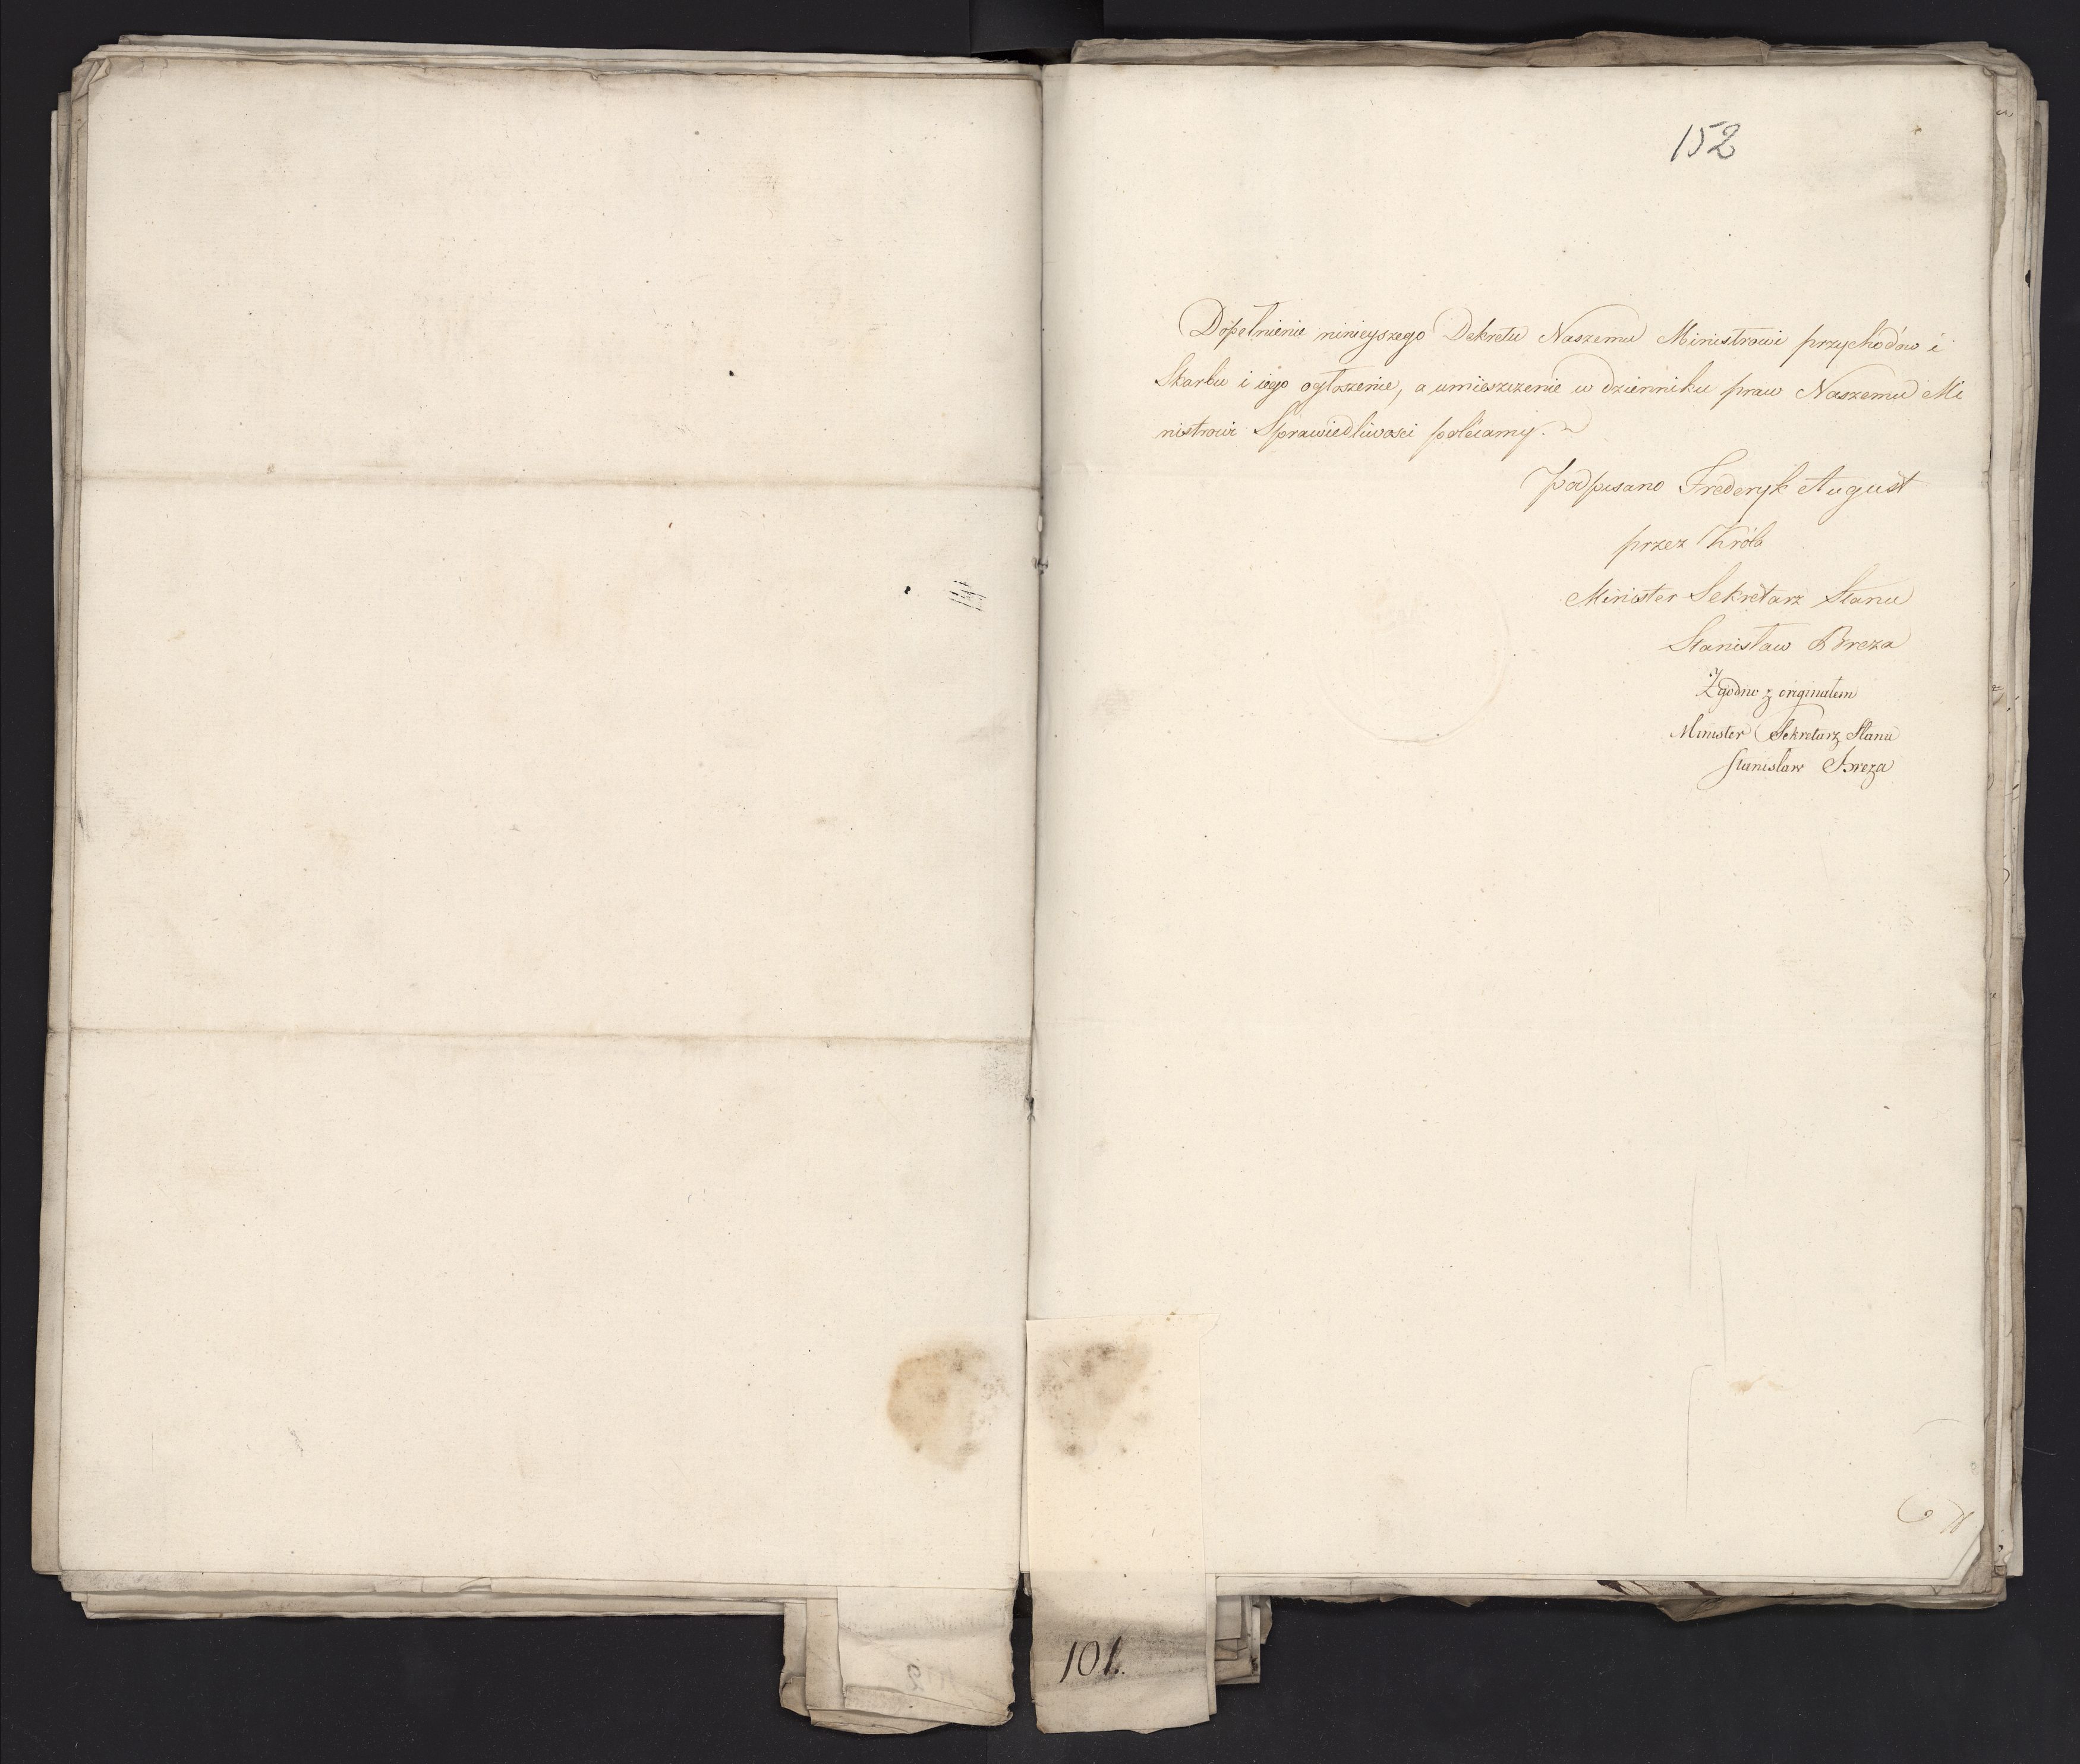 152
Dopełnienie ninieyszego Dekretu Naszemu Ministrowi przychodów i
Skarbu i iego ogłoszenie, a umieszczenie w dzienniku praw Naszemu Mi
nistrowi Sprawiedliwosci polécamy.
Podpisano Frederyk August
przez Króla
Minister Sekretarz Stanu
Stanisław Breza
Zgodno z originałem
Minister Sekretarz Stanu
Stanisław Breza
101.